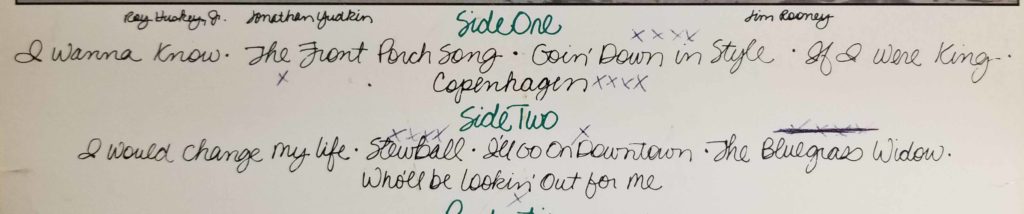 Roy Huskey, Jr. Jonathan Yudkin Jim Rooney
Side One
I Wanna Know · The Front Porch Song · Goin' Down in Style · If I Were King ·
Copenhagen xxxx
Side Two
I would change my life · Stewball · I'll Go On Downtown · The Bluegrass Widow ·
Who'll be lookin' out for me